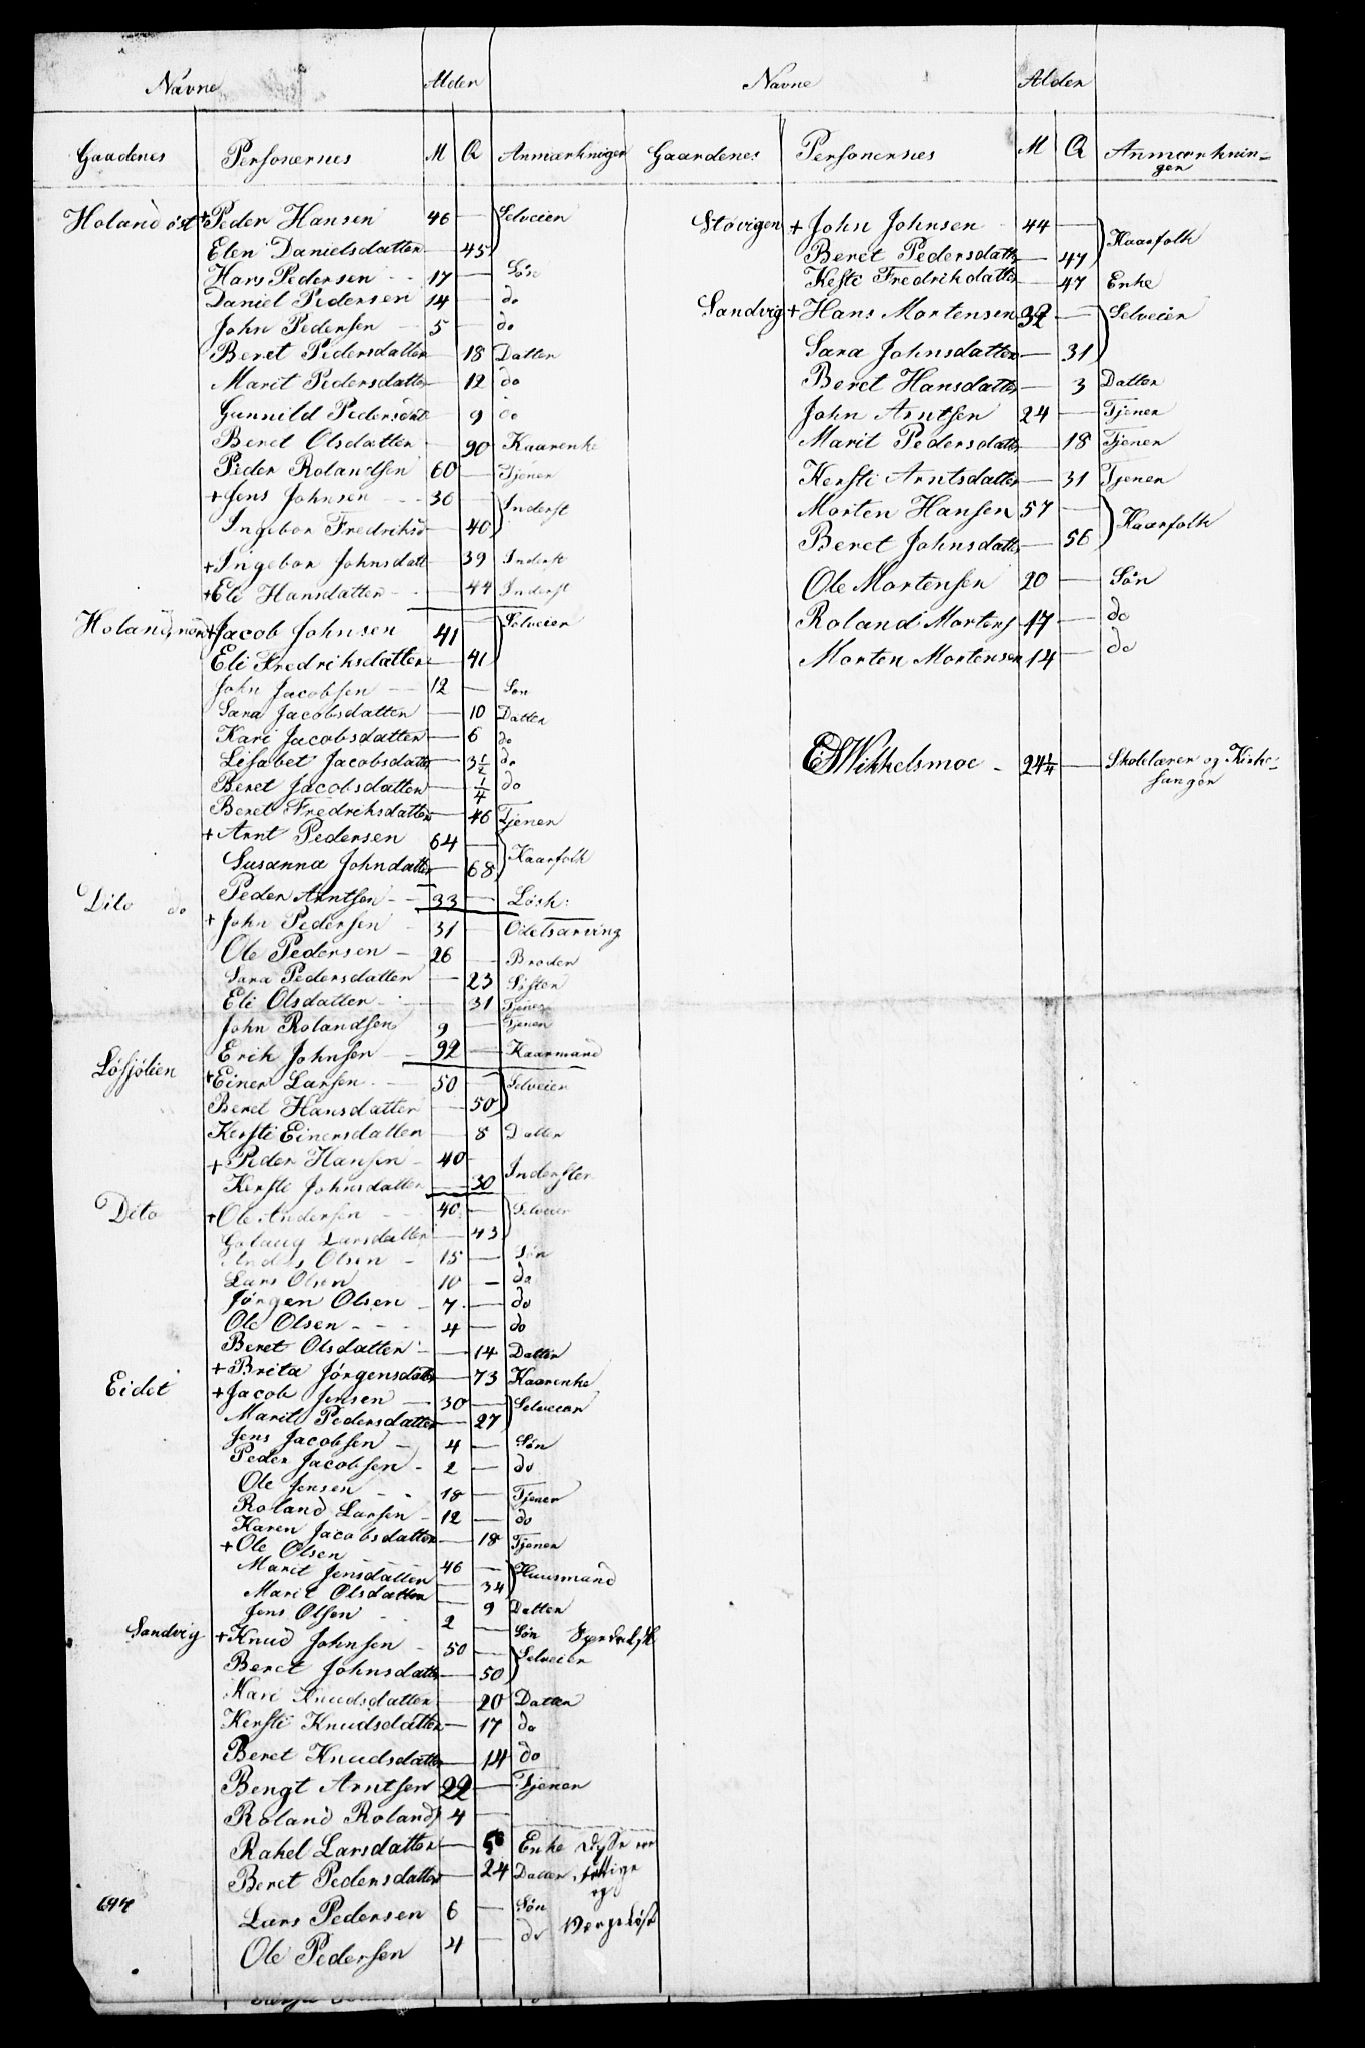 Navne Alder
Gaadenes Personernes M Q Anmærkninger
Holand øst + Peder Hansen 46 — Selveier
Elen Danielsdatter — 45
Hans Pedersen 17 — Søn
Daniel Pedersen 14 — do
John Pedersen 5 — do
Beret Pedersdatter — 18 Datter
Marit Pedersdatter — 12 do
Gunnild Pedersdat — 9 do
Beret Olsdatter — 90 Kaarenke
Peder Rolandsen 60 — Tjener
+ Jens Johnsen 36 — Inderst
Ingebor Fredriksd — 40
+ Ingebor Johnsdatt — 39 Inderst
+ Eli Hansdatter — 44 Inderst
Holand, nord + Jacob Johnsen 41 — Selveier
Eli Fredriksdatter — 41
John Jacobsen 12 — Søn
Sara Jacobsdatter — 10 Datter
Kari Jacobsdatter — 6 do
Lisabet Jacobsdatter — 3½ do
Beret Jacobsdatter — ¼ do
Beret Fredriksdatter — 46 Tjener
+ Arnt Pedersen 64 — Kaarfolk
Susanna Johndatter — 68
Peder Arntsen 33 — Lösk:
Dito do + John Pedersen 31 — Odelsarving
Ole Pedersen 26 — Broder
Sara Pedersdatter — 23 Söster
Eli Olsdatter — 31 Tjener
John Rolandsen 9 — Tjener
Erik Johnsen 92 — Kaarmand
Løfsjølien + Einer Larsen 50 — Selveier
Beret Hansdatter — 50
Kersti Einersdatter — 8 Datter
+ Peder Hansen 40 Inderster
Kersti Johnsdatter — 30
Dito + Ole Andersen 40 — Selveier
Golaug Larsdatter — 43
Anders Olsen 15 — Søn
Lars Olsen 10 — do
Jørgen Olsen 7 — do
Ole Olsen 4 — do
Beret Olsdatter — 14 Datter
+ Brita Jørgensdatter — 73 Kaarenke
Eidet + Jacob Jensen 30 — Selveier
Marit Pedersdatter — 27
Jens Jacobsen 4 — Søn
Peder Jacobsen 2 — do
Ole Jensen 18 — Tjener
Roland Larsen 12 — do
Karen Jacobsdatter — 18 Tjener
+ Ole Olsen 46 — Huusmand
Marit Jensdatter — 34
Marit Olsdatter — 9 Datter
Jens Olsen 2 — Søn
Sandvig + Knud Johnsen 50 — Selveier
Beret Johnsdatter — 50
Kari Knudsdatter — 20 Datter
Kersti Knudsdatter — 17 do
Beret Knudsdatter — 14 do
Bengt Arntsen 22 — Tjener
Roland Rolands 4 —
Rahel Larsdatter — Enke Disse ere
Beret Pedersdatter — 24 Datter fattige
og
Lars Pedersen 6 — Søn
Ole Pedersen 4 — do Værgeløse
Navne Alder
Gaardenes Personernes M Q Anmærknin-
gen
Støvigen + John Johnsen 44 — Kaarfolk
Beret Pedersdatter — 47
Kesti Fredrikdatter — 47 Enke
Sandvig + Hans Mortensen 32 — Selveier
Sara Johnsdatter — 31
Beret Hansdatter — 3 Datter
John Arntsen 24 — Tjener
Marit Pedersdatter — 18 Tjener
Kersti Arntsdatter — 31 Tjener
Morten Hansen 57 — Kaarfolk
Beret Johnsdatter — 56
Ole Mortensen 20 — Søn
Roland Mortens 17 — do
Morten Mortensen 14 — do
E Wikkelsmoe 24¼ — Skolelærer og Kirke-
sanger